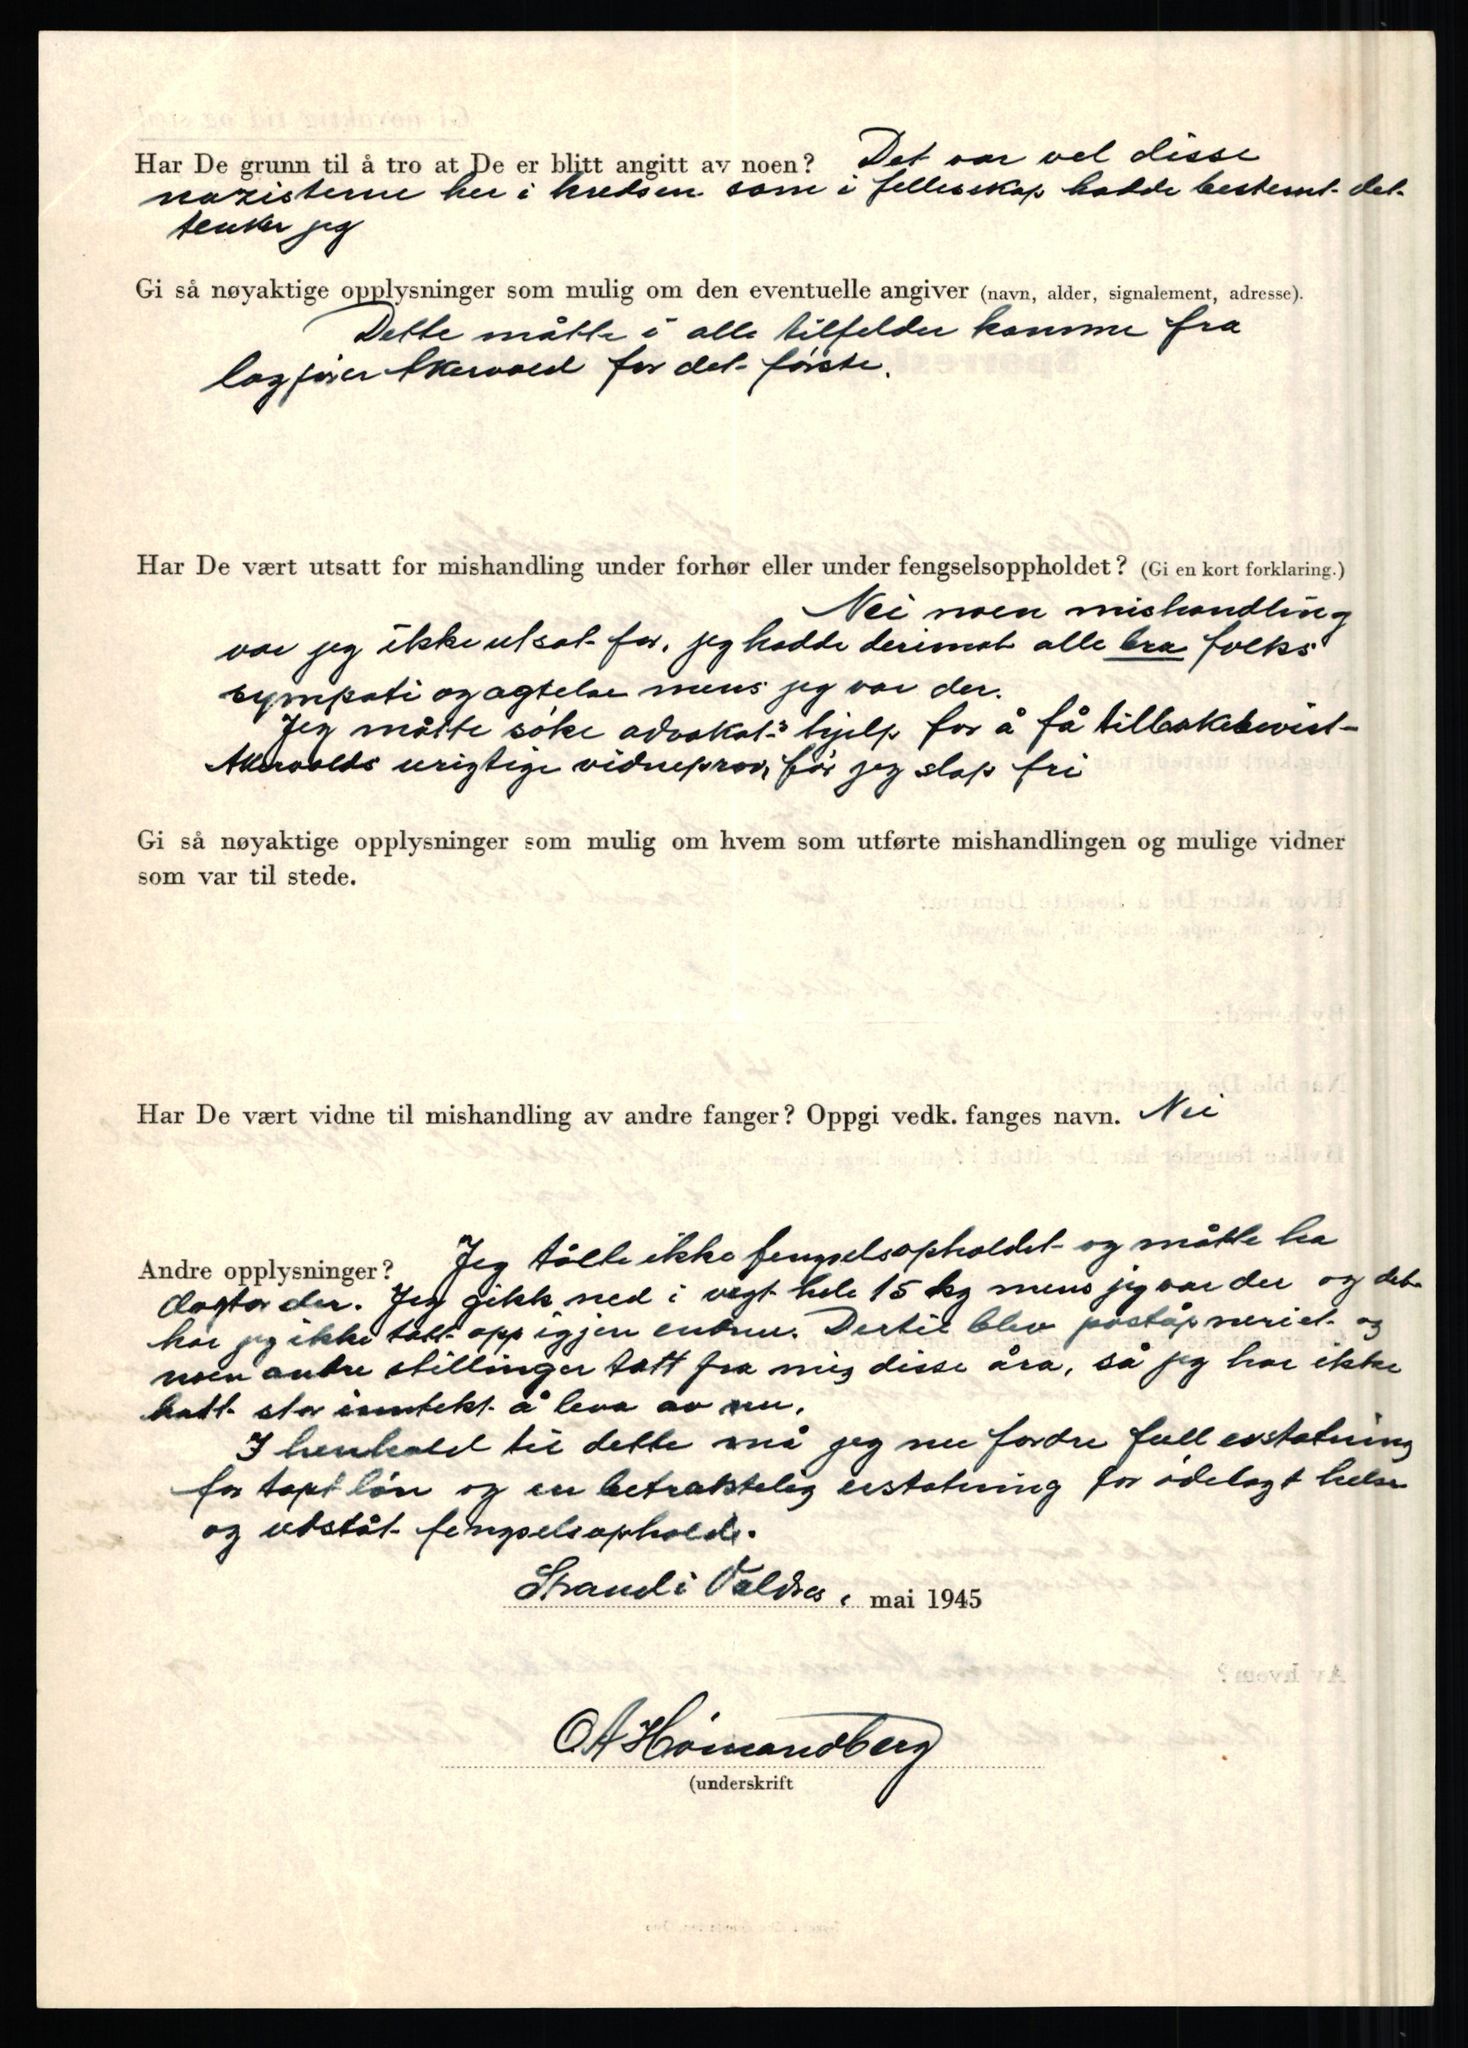 Har De grunn til å tro at De er blitt angitt av noen? Det var vel disse
nazisterne her i kredsen som i fellesskap hadde bestemt det
tenker jeg
Gi så nøyaktige opplysninger som mulig om den eventuelle angiver (navn, alder, signalement, adresse).
Dette måtte i alle tilfelder komme fra
lagfører Akervold for det første.
Har De vært utsatt for mishandling under forhør eller under fengselsoppholdet? (Gi en kort forklaring.)
Nei noen mishandling
var jeg ikke utsat for, jeg hadde derimot alle bra folks
sympati og agtelse mens jeg var der.
Jeg måtte søke advokat's hjelp for å få tilbakebevist
Akervolds urigtige vidneprov, før jeg slap fri
Gi så nøyaktige opplysninger som mulig om hvem som utførte mishandlingen og mulige vidner
som var til stede.
Har De vært vidne til mishandling av andre fanger? Oppgi vedk. fanges navn. Nei
Andre opplysninger? Jeg tålte ikke fengselsopholdet og måtte ha
dogtor der. Jeg gikk ned i vegt hele 15 kg mens jeg var der og det
har jeg ikke tatt opp igjen endnu. Dertil blev poståpneriet og
noen andre stillinger tatt fra mig disse åra, så jeg har ikke
hatt stor inntekt å leva av nu.
I henhold til dette må jeg nu fordre full erstatning
for tapt løn og en betraktelig erstatning for ødelagt helse
og utståt fengselsophold.
Strand i Valdres, mai 1945
O A Hømandberg
(underskrift